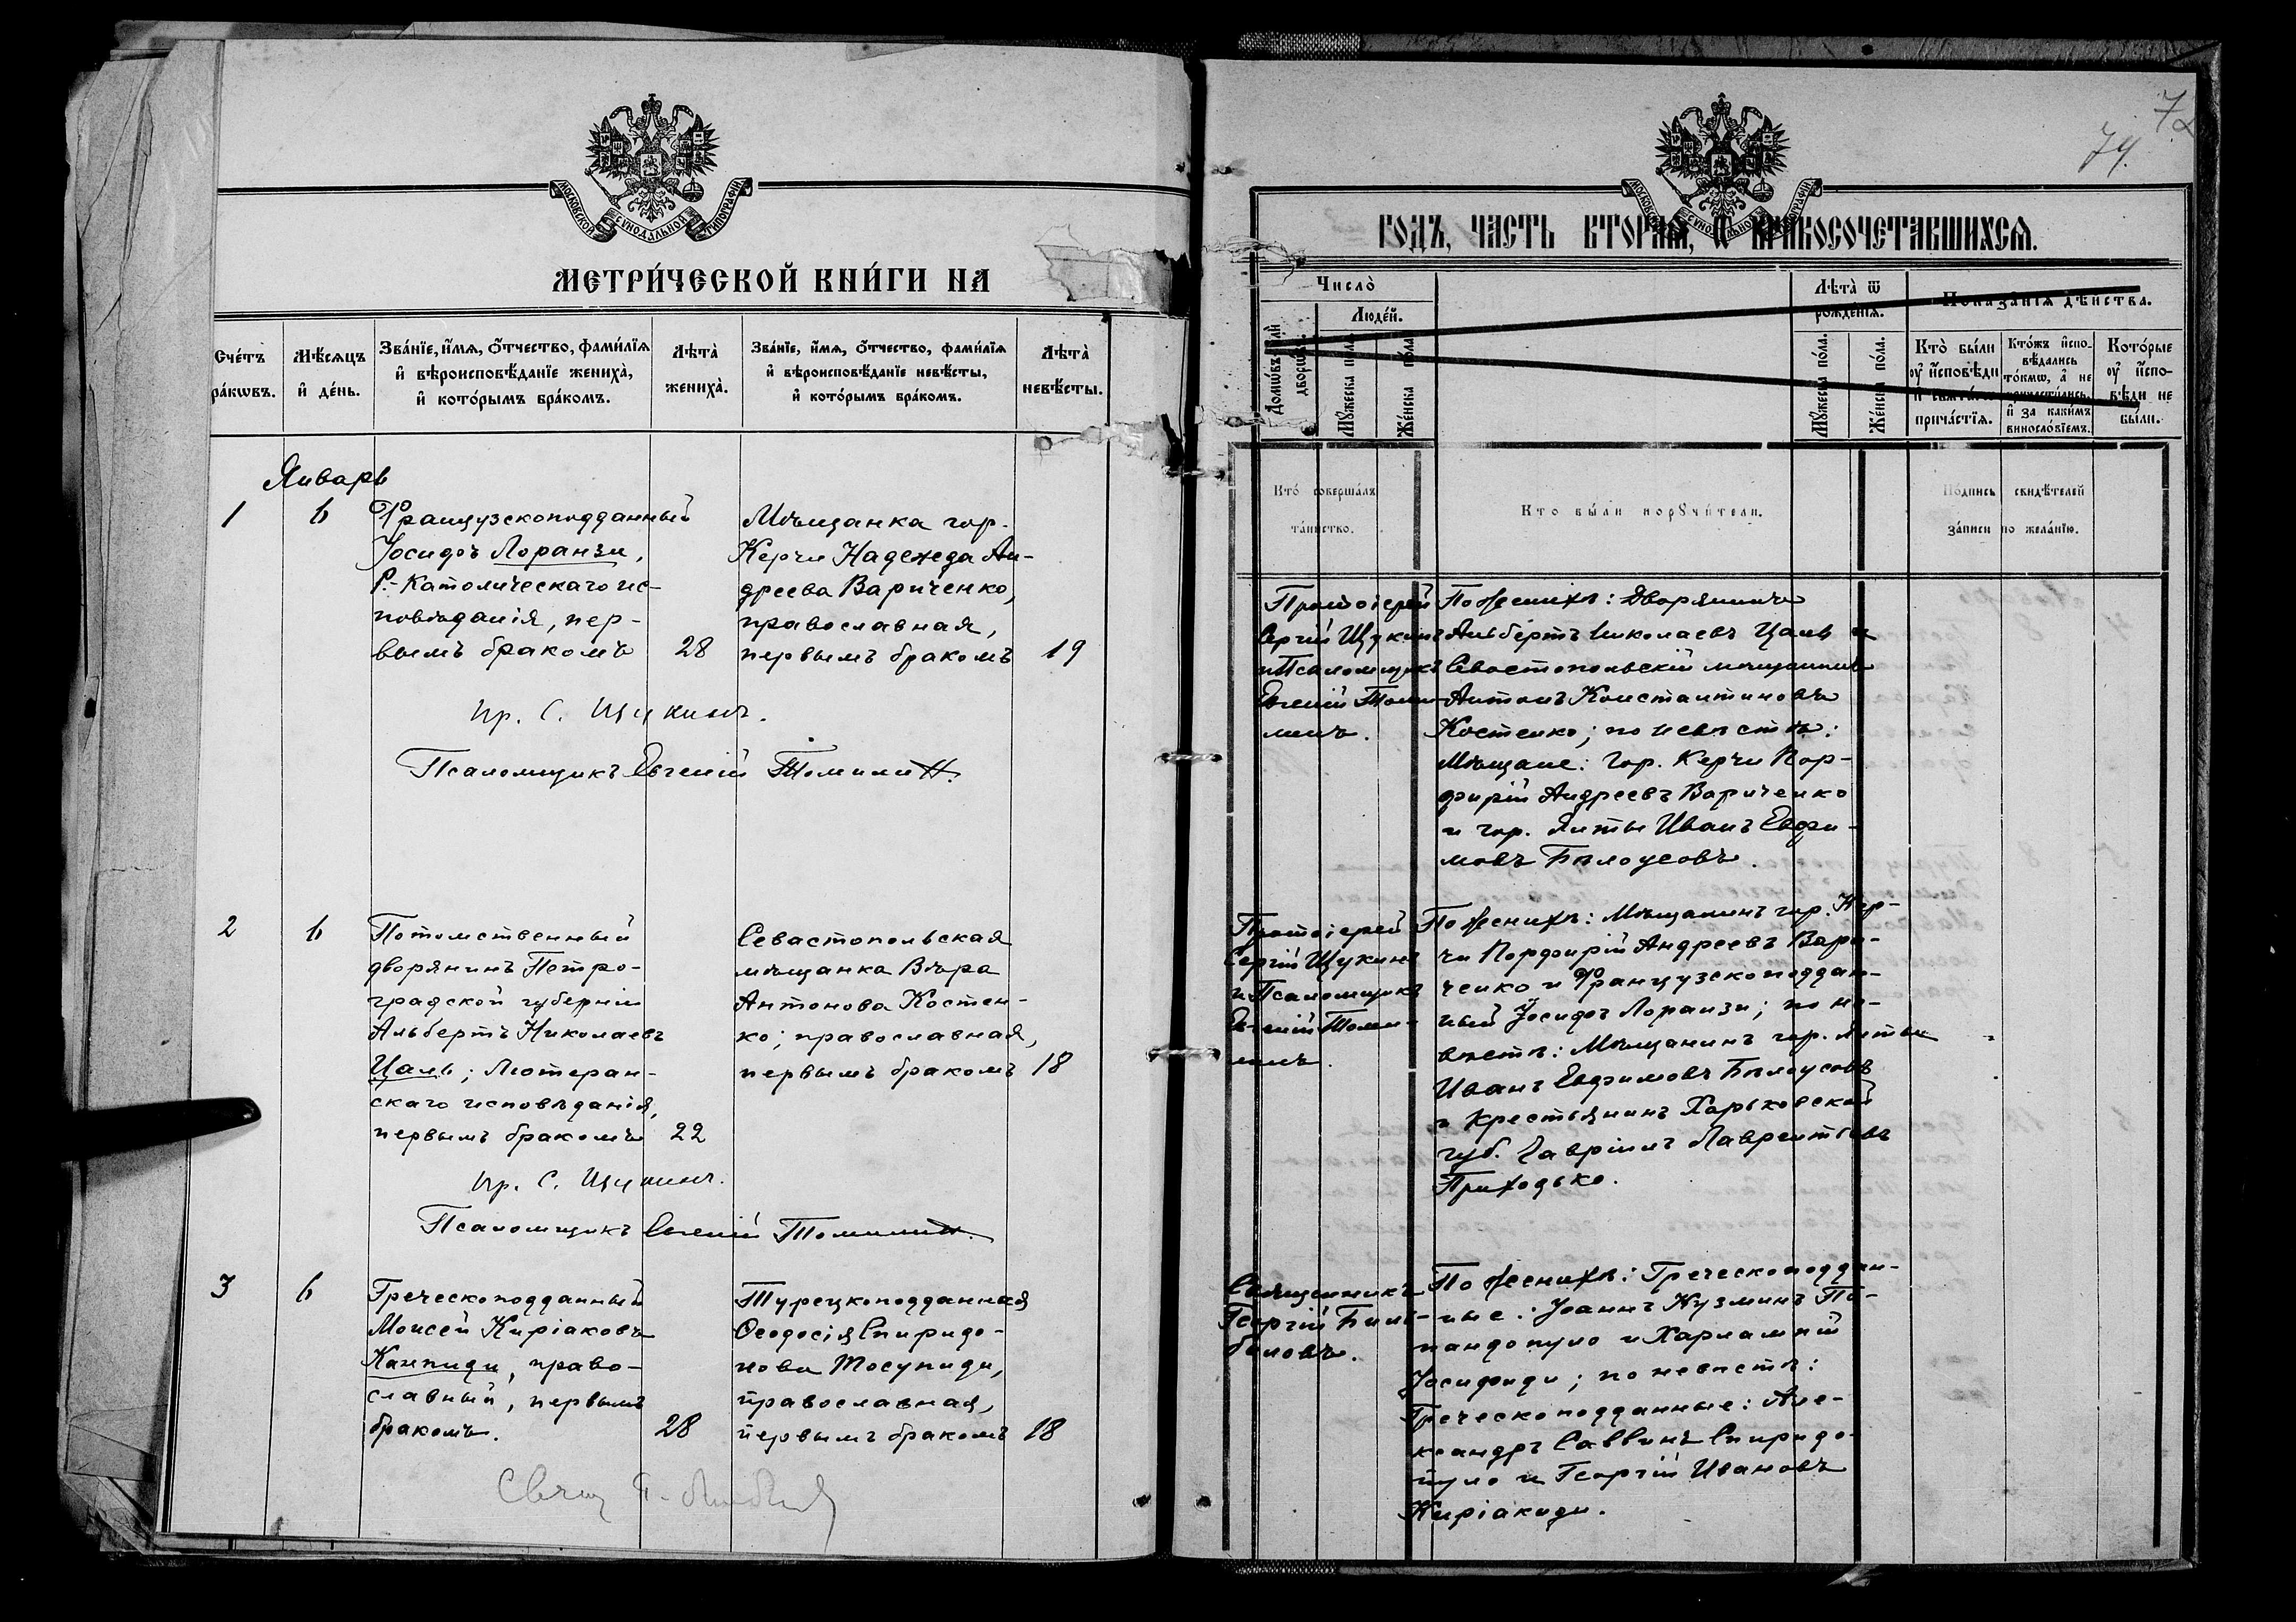 МОСКОВСКОЙ СѴНОДАЛЬНОЙ ТИПОГРАФІИ
МЕТРИ́ЧЕСКОЙ КНИ́ГИ НА
Сче́тъ ра́кωвъ.
Мѣ́сяцъ и҆ де́нь.
Зва́нїе, и҆́мя, ѻ҆́тчество, фами́лїя и҆ вѣроисповѣ́данїе жениха̀, и҆ кото́рымъ бра́комъ.
Лѣта̀ жениха̀.
Зва́нїе, и҆́мя, ѻ҆́тчество, фами́лїя и҆ вѣроисповѣ́данїе невѣ́сты, и҆ кото́рымъ бра́комъ.
Лѣта̀ невѣ́сты.
Январь
1
6
Французскоподданный
Іосифъ Лоранзи,
Р.-Католическаго ис-
повѣданія, пер-
вымъ бракомъ
28
Мѣщанка гор.
Керчи Надежда Ан-
дреева Вариченко,
православная,
первымъ бракомъ
19
Пр. С. Щукинъ.
Псаломщикъ Евгений Томилин.
2
6
Потомственный
дворянинъ Петро-
градской губерніи
Альбертъ Николаевъ
Цаль; Лютеран-
скаго исповѣданія,
первымъ бракомъ
22
Севастопольская
мѣщанка Вѣра
Антонова Костен-
ко; православная,
первымъ бракомъ
18
Пр. С. Щукинъ.
Псаломщикъ Евгений Томилин.
3
6
Греческоподданный
Моисей Киріаковъ
Канпиди, право-
славный, первымъ
бракомъ.
28
Турецкоподданная
Ѳеодосія Спиридо-
нова Тосуниди,
православная,
первымъ бракомъ
18
72
74.
МОСКОВСКОЙ СѴНОДАЛЬНОЙ ТИПОГРАФІИ
ГОДЪ, ЧАСТЬ ВТОРАЯ, Ѡ БРАКОСОЧЕТАВШИХСЯ.
Число̀
Домѡ́въ и҆лѝ дворѡ́въ.
Люде́й.
Мꙋ́жеска по́ла.
Же́нска по́ла.
Лѣта̀ ѿ рожде́нїѧ.
Мꙋ́жеска по́ла.
Же́нска по́ла.
Показа́нїѧ дѣ́йства.
Кто̀ бы́ли ᲂу҆ и҆́сповѣди и҆ свѧта́гѡ прича́стїѧ.
Кто́жъ и҆спо-
вѣ́дались то́кмѡ, а҆ не причасти́лись, и҆ за каки́мъ винослѡ́вїемъ.
Кото́рые ᲂу҆ и҆́спо-
вѣди не бы́ли.
Кто̀ соверша́лъ та́инство.
Кто бы́ли порꙋчи́тели.
По́дпись свидѣ́телей за́писи по жела́нїю.
Протоіерей
Сергій Щукинъ
и Псаломщикъ
Евгеній Томи-
линъ.
По женихѣ: Дворянинъ
Альбертъ Николаевъ Цаль и
Севастопольскій мѣщанинъ
Антонъ Константиновъ
Костенко; по невѣстѣ:
Мѣщане: гор. Керчи Пор-
фирій Андреевъ Вариченко
и гор. Ялты Иванъ Евфи-
мовъ Бѣлоусовъ.
Протоіерей
Сергій Щукинъ
и Псаломщикъ
Евгеній Томи-
линъ.
По женихѣ: Мѣщанинъ гор. Кер-
чи Порфирій Андреевъ Вари-
ченко и Французскоподдан-
ный Іосифъ Лоранзи; по не-
вѣстѣ: Мѣщанинъ гор. Ялты
Иванъ Евфимовъ Бѣлоусовъ
и Крестьянинъ Харьковской
губ. Гавріилъ Лаврентьевъ
Приходько.
Священникъ
Георгій Били-
баловъ.
По женихѣ: Греческоподдан-
ные: Іоаннъ Кузминъ Па-
пандопуло и Харлампій
Іосифиди; по невѣстѣ:
Греческоподданные: Але-
ксандръ Саввинъ Спиридо-
пуло и Георгій Ивановъ
Киріакиди.